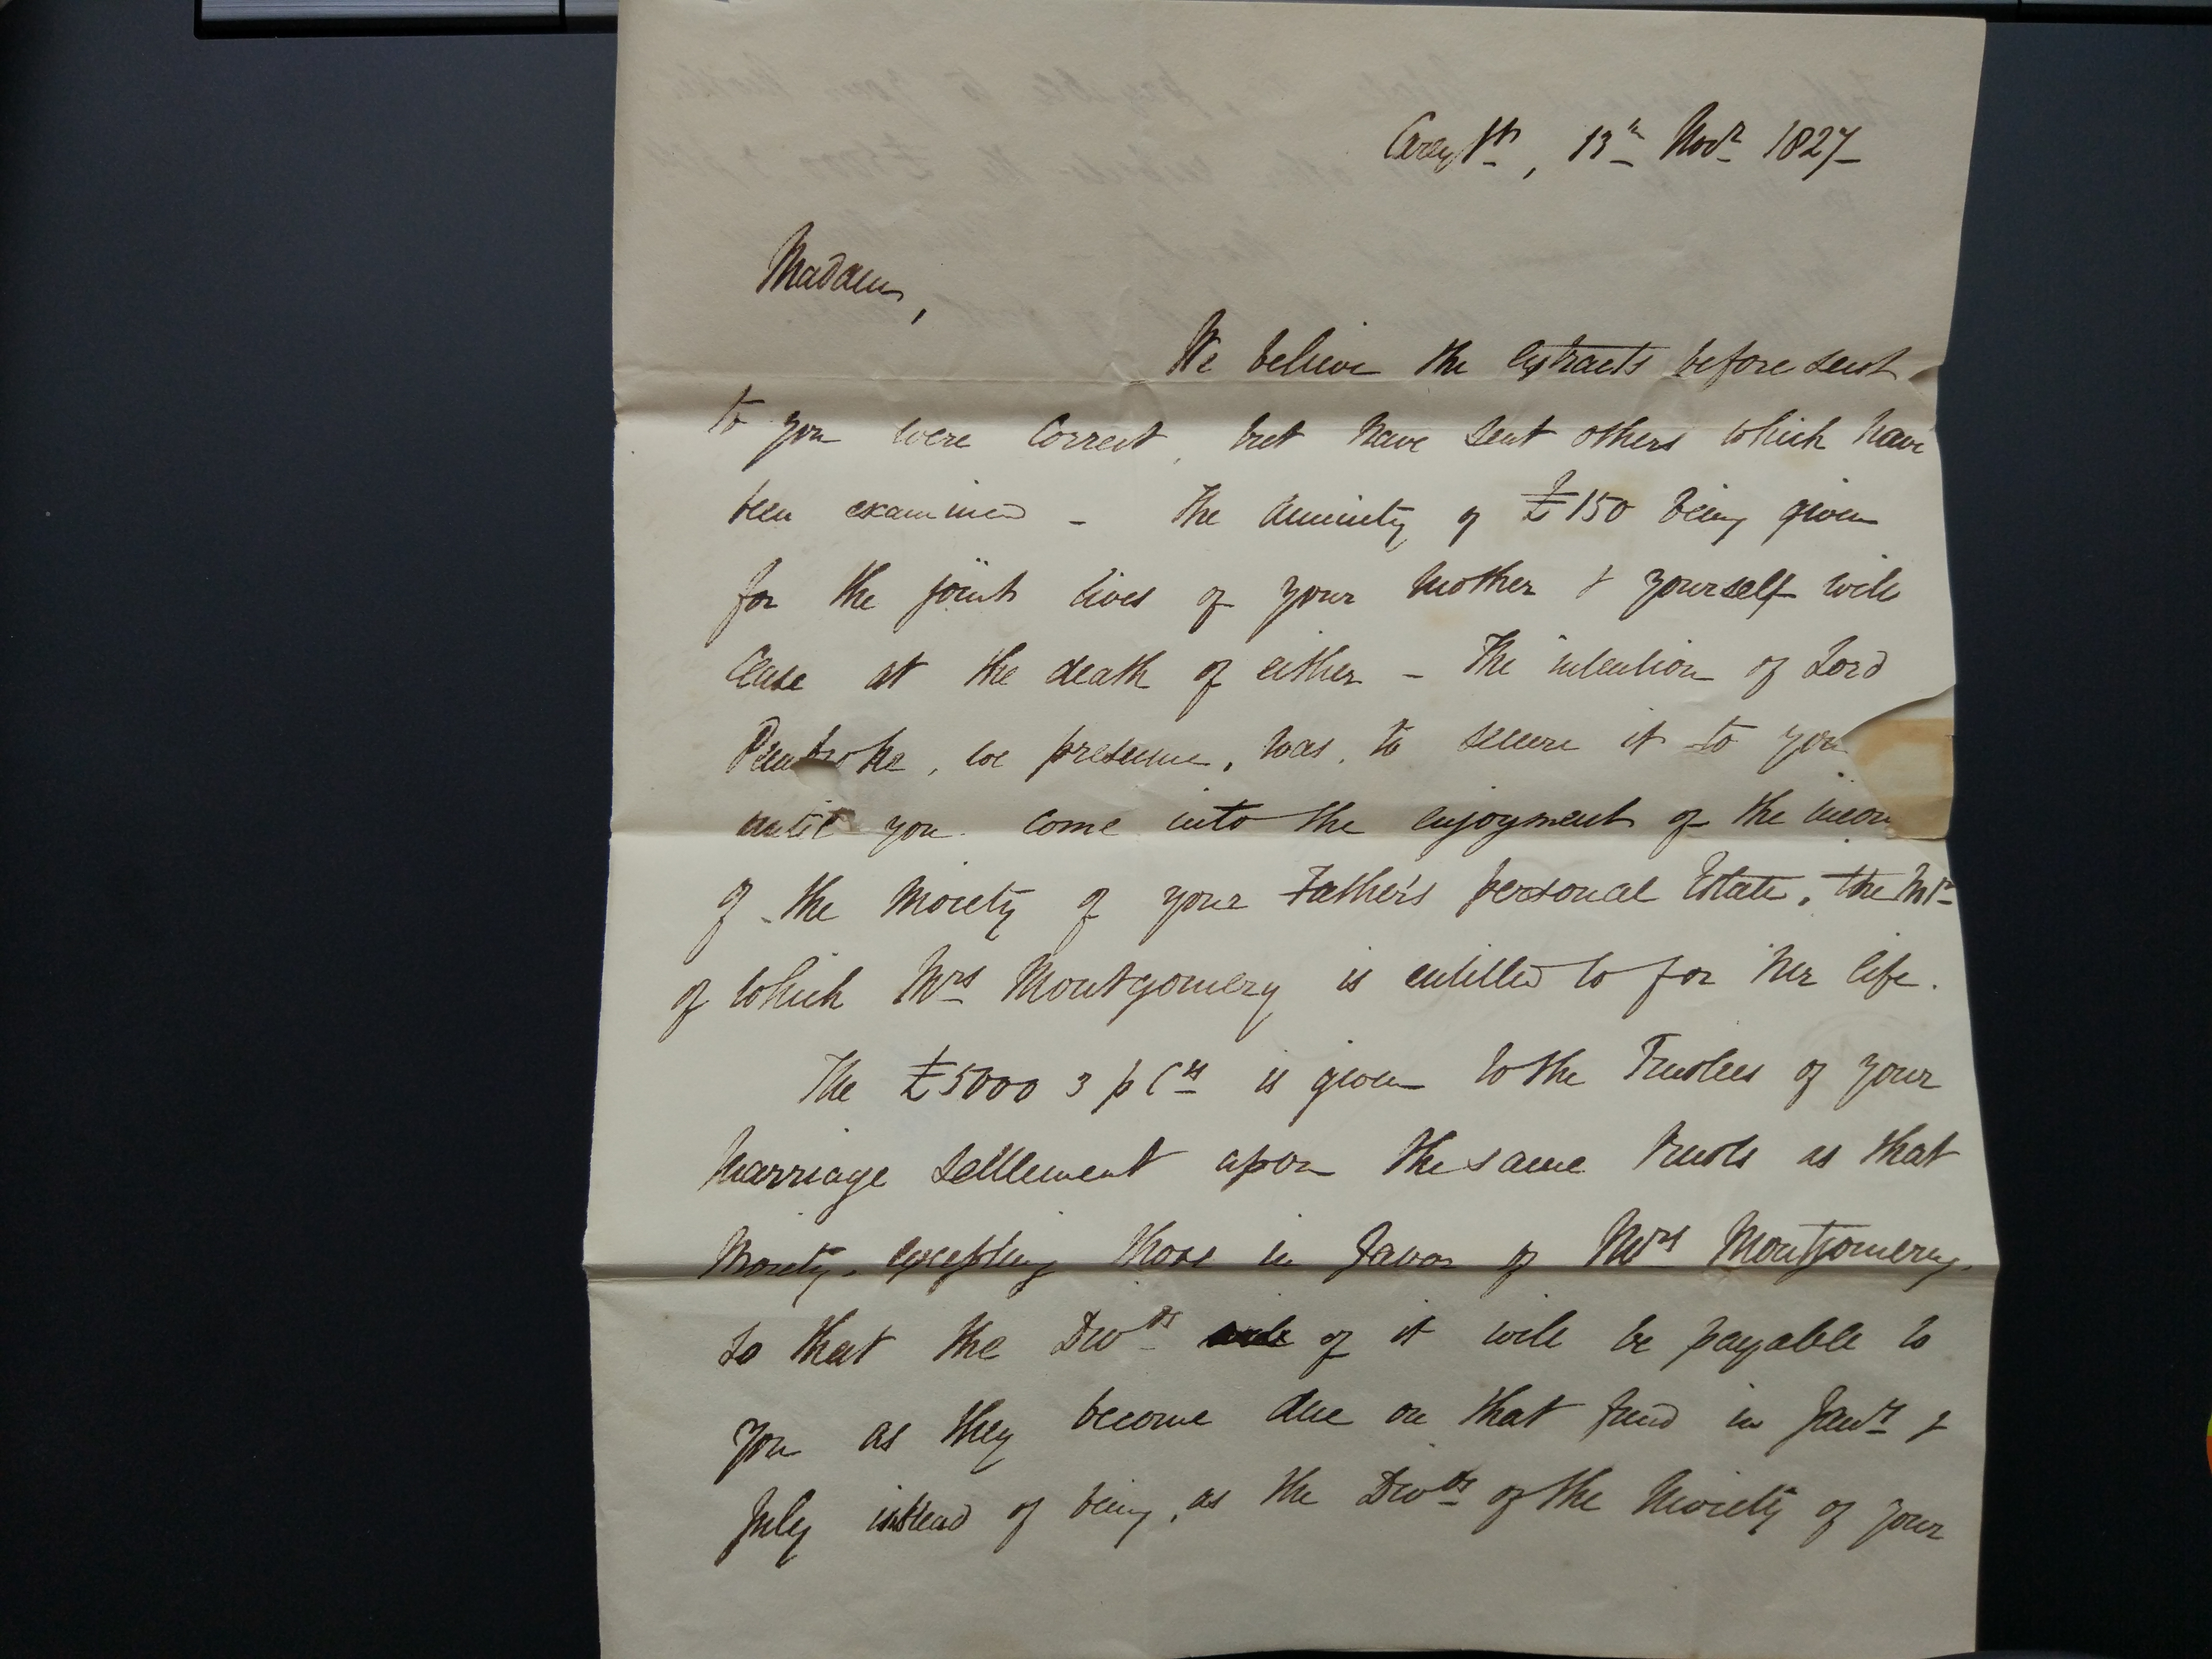 Carey St, 13th Novr 1827
Madam,
We believe the extracts before sent
to you were correct, but have sent others which have
been examined - The Annuity of £150 being given
for the joint lives of your Mother & yourself will
Cease at the death of either - The intention of Lord
Pembroke, we presume, was, to secure it to you
until you come into the enjoyment of the
of the Moiety of your Father's personal Estate, the Intt
of which Mrs Montgomery is entitled to for her life.
The £5000 3 p Cts is given to the Trustees of your
Marriage Settlement upon the same trusts as that
Moiety, excepting those in favor of Mrs Montgomery,
so that the Divds of it will be payable to
you as they become due on that fund in Jany &
July instead of being, as the Divds of the Moiety of your